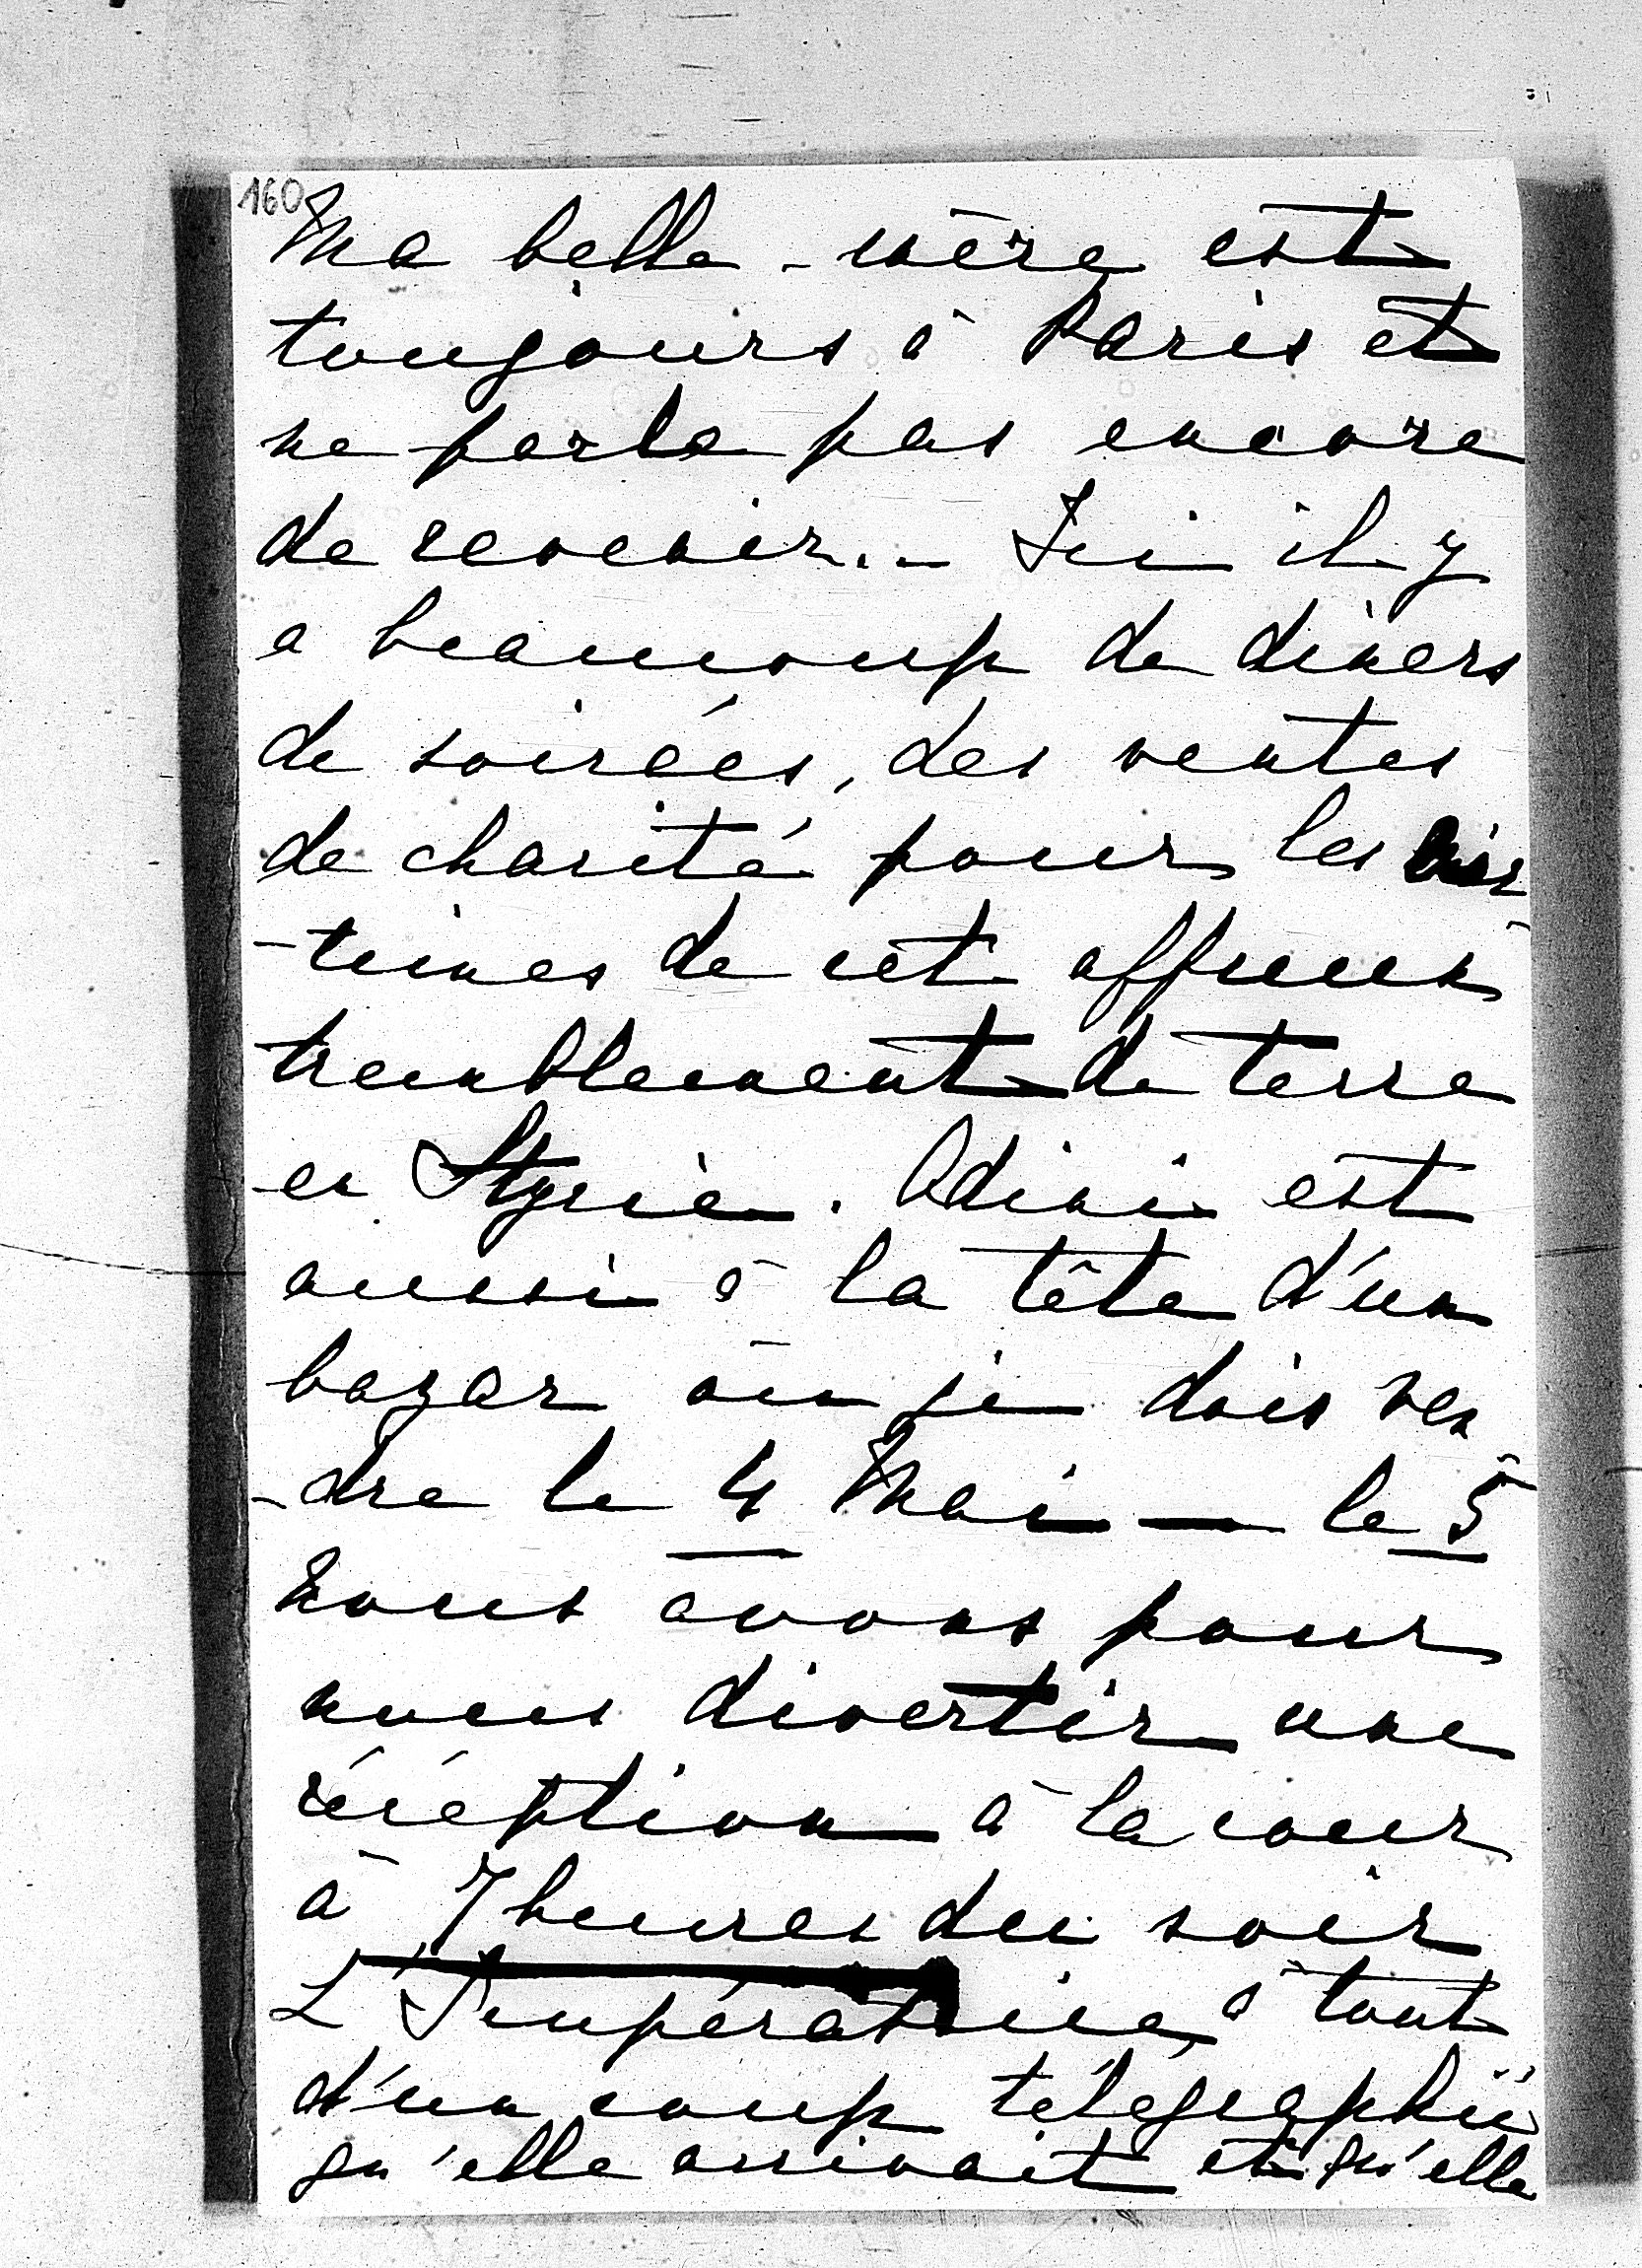 160
Ma belle-mère est
toujours à Paris et
ne parle pas encore
de revenir... Ici il y
a beaucoup de diners
de soirées, des ventes
de charité pour les vic
-times de cet affreux
tremblement de terre
en Styrie. Adini est
aussi à la tête d'un
bazar où je dois ven
-dre le 4 Mai — le 5
nous avons pour
nous divertir une
réception à la cour
à 7 heures du soir
L'Impératrice a tout
d'un coup télégraphié
qu'elle arrivait et qu'elle